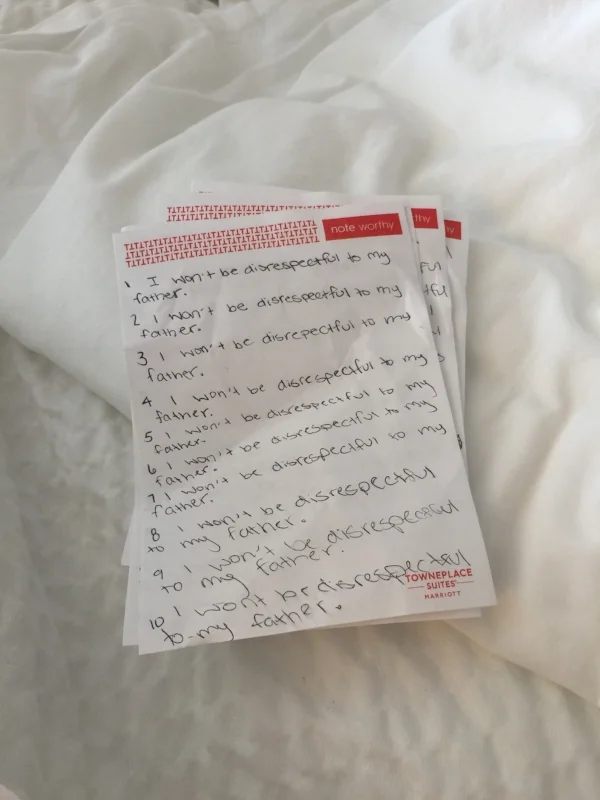 note worthy
thy
ty
1 I won't be disrespectful to my
father.
2 I won't be disrespectful to my
father.
3 I won't be disrepectful to my
father.
4 I won't be disrespectful to my
father.
5 I won't be disrespectful to my
father.
6 I won't be disrespectful to my
father.
7 I won't be disrespectful to my
father.
8 I won't be disrespectful
to my father.
9 I won't be disrespectful
to my father.
10 I won't be disrespectful
to my father.
TOWNEPLACE
SUITES
MARRIOTT